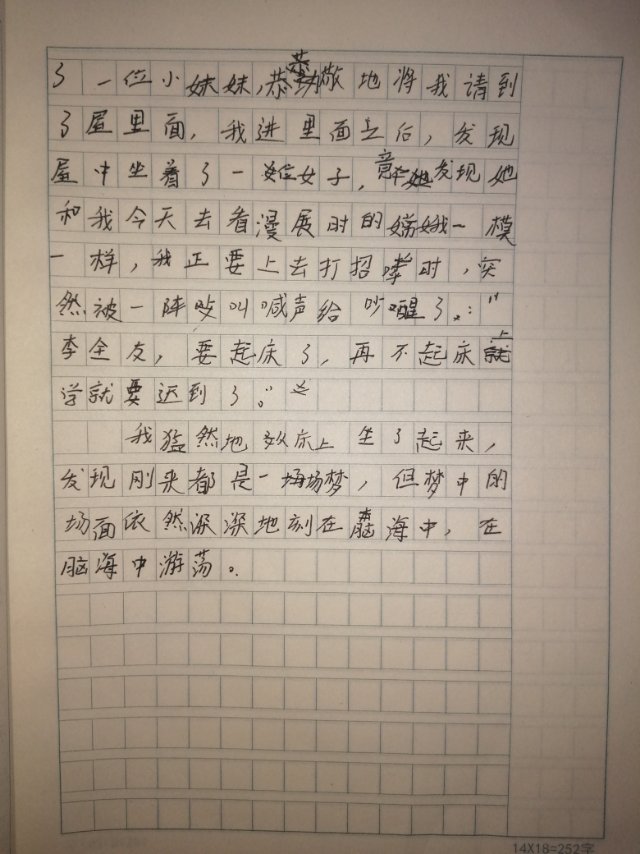 了一位小妹妹,恭恭敬敬地将我请到
了屋里面,我进里面去后,发现
屋中坐着了一位女子,竟发现她
和我今天去看漫展时的嫦娥一模
一样,我正要上去打招哮时,突
然被一阵叫喊声给吵醒了。:"
李全友,要起床了,再不起床上
学就要迟到了。"
我猛然地从床上坐了起来,
发现刚来都是一场梦,但梦中的
场面依然深深地刻在脑海中,在
脑海中游荡。
14X18=252字